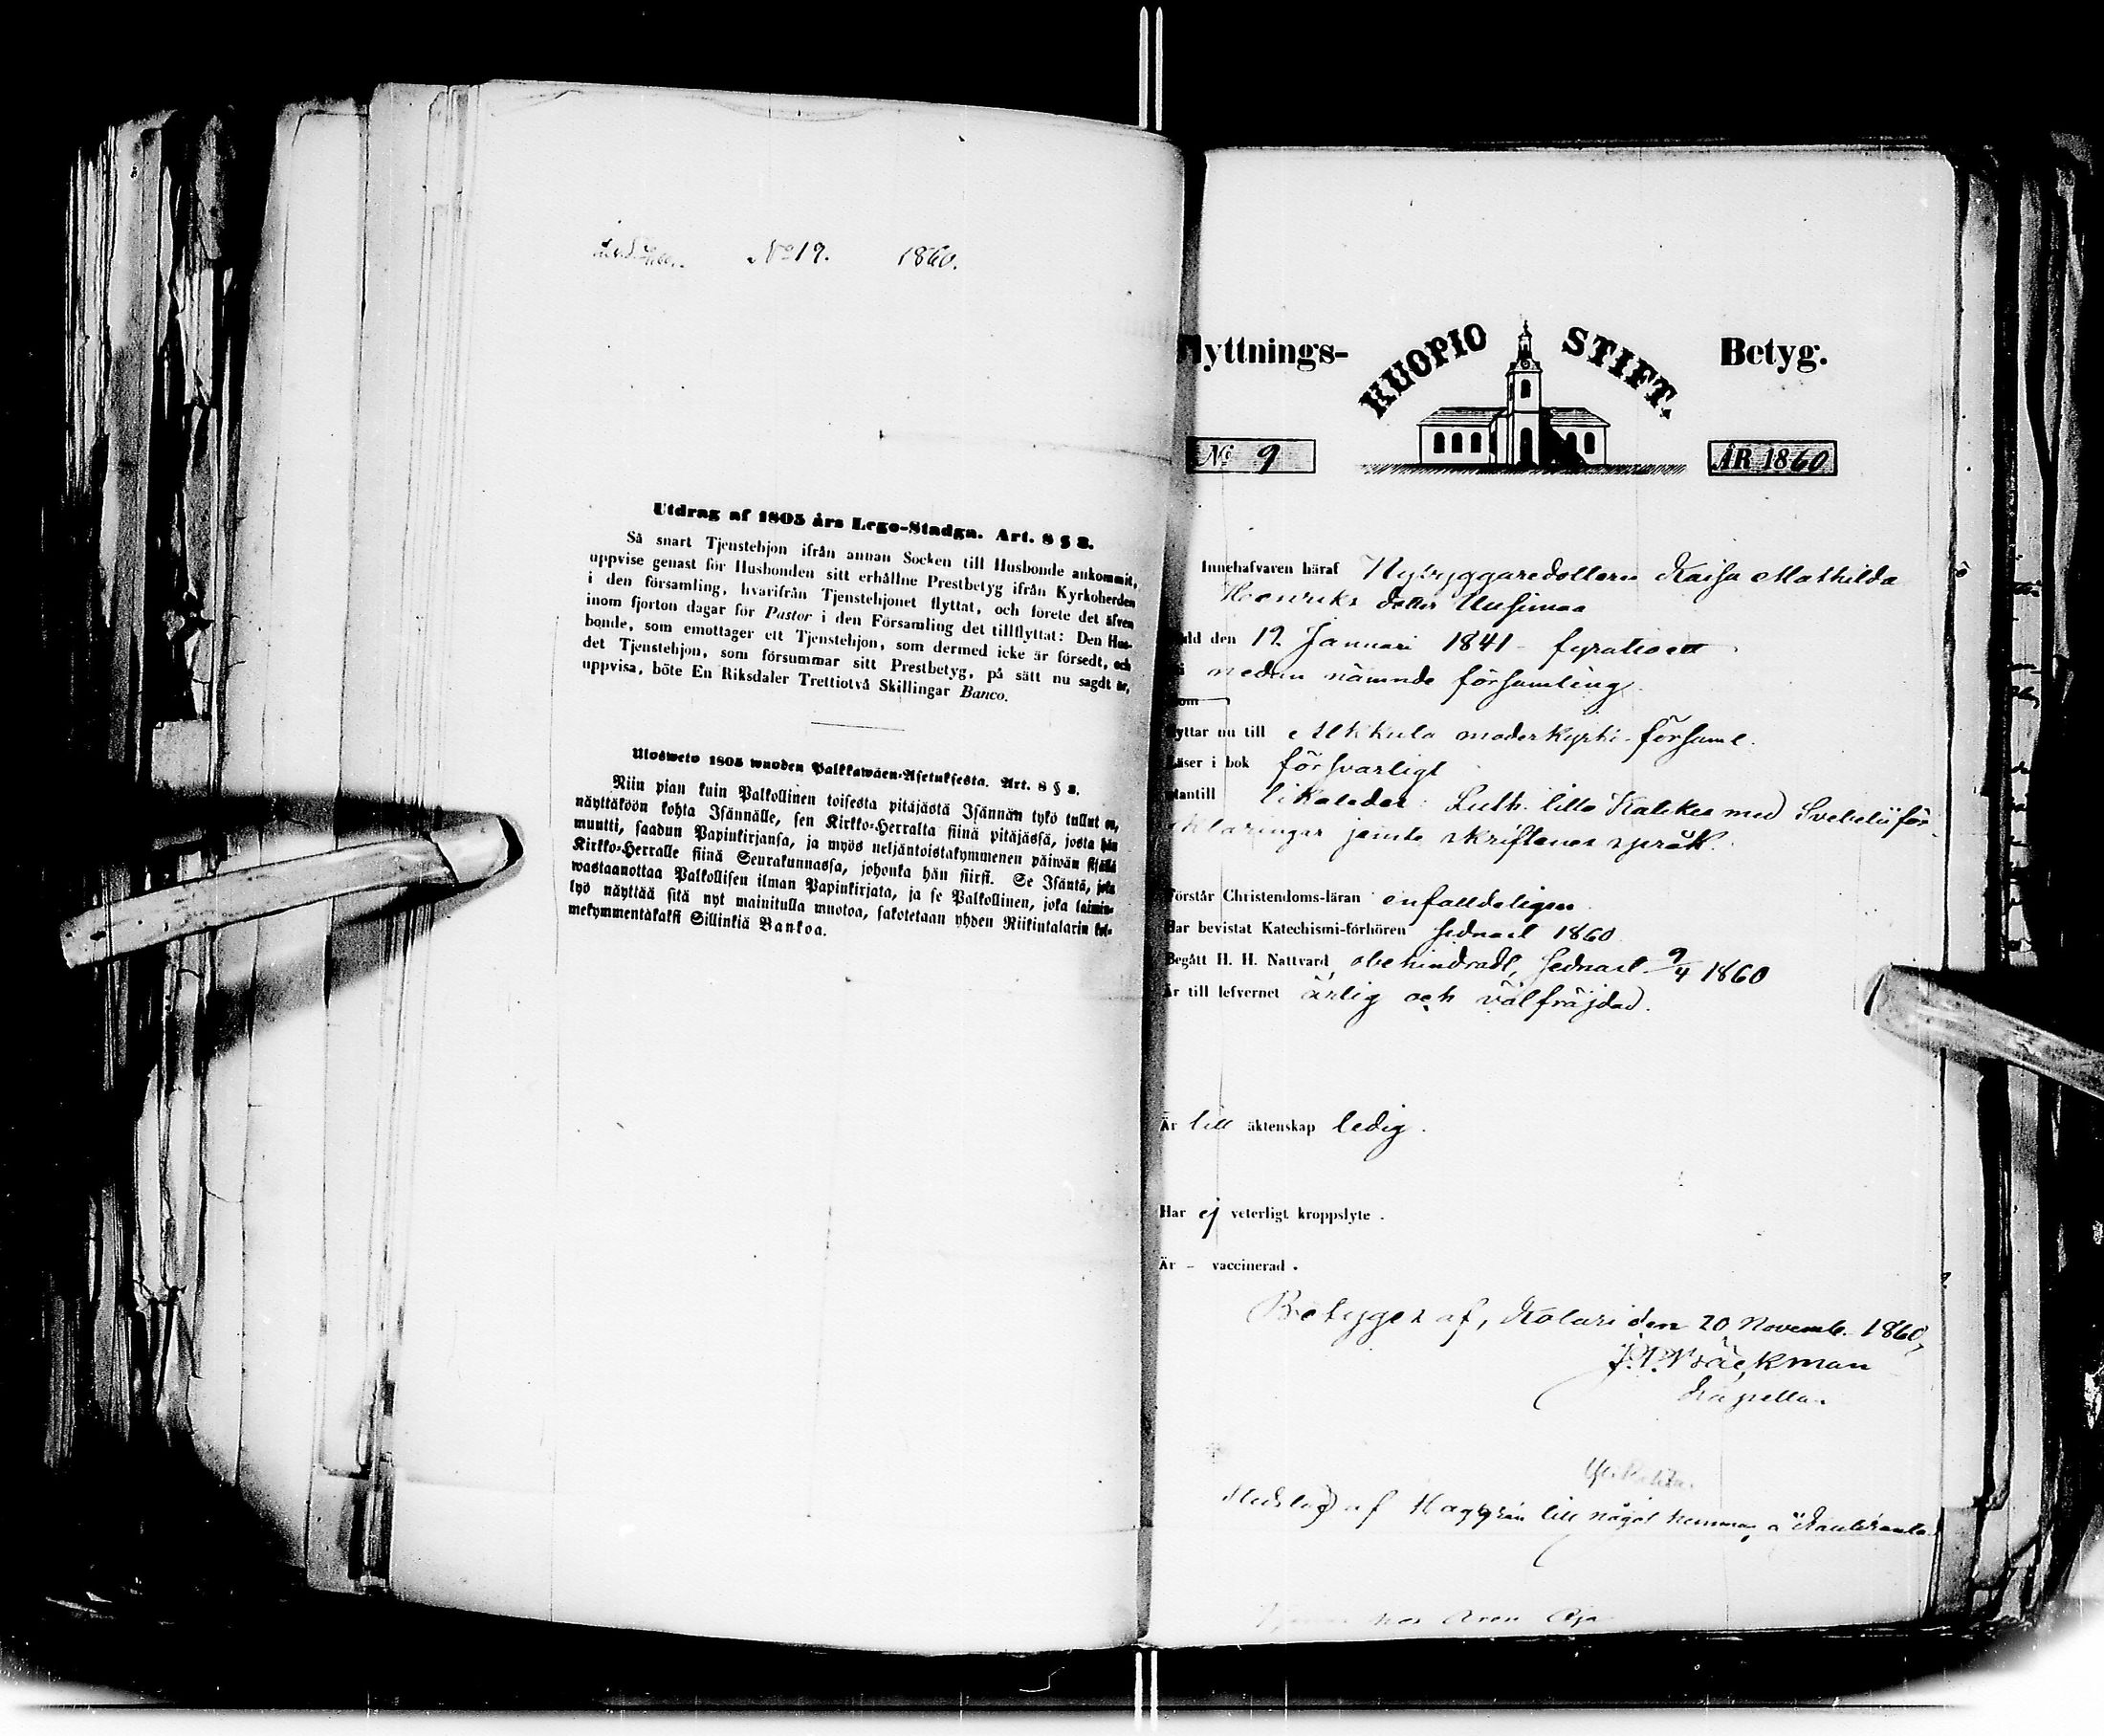 No 19. 1860.
Utdrag af 1805 års Lego-Stadga. Art. 8 § 8.
Så snart Tjenstehjon ifrån annan Socken till Husbonde ankommit,
uppvise genast för Husbonden sitt erhållne Prestbetyg ifrån Kyrkoherden
i den församling, hvarifrån Tjenstehjonet flyttat, och förete det äfven
inom fjorton dagar för Pastor i den Församling det tillflyttat: Den Hus-
bonde, som emottager ett Tjenstehjon, som dermed icke är försedt, och
det Tjenstehjon, som försummar sitt Prestbetyg, på sätt nu sagdt är,
uppvisa, böte En Riksdaler Trettiotvå Skillingar Banco.
Ulosweto 1805 wuoden Palkkawäen-Asetuksesta. Art. 8 § 8.
Niin pian kuin Palkollinen toisesta pitäjästä Isännän tykö tullut on,
näyttäköön kohta Isännälle, sen Kirkko-Herralta siinä pitäjässä, josta hän
muutti, saadun Papinkirjansa, ja myös neljäntoistakymmenen päiwän sisällä
Kirkko-Herralle siinä Seurakunnassa, johonka hän siirsi. Se Isäntä, joka
wastaanottaa Palkollisen ilman Papinkirjata, ja se Palkollinen, joka laimin-
lyö näyttää sitä nyt mainitulla muotoa, sakotetaan yhden Riikintalarin kol-
mekymmentäkaksi Sillinkiä Bankoa.
Flyttnings- KUOPIO STIFT. Betyg.
No 9 ÅR 1860
Innehafvaren häraf Nybyggaredottern Kaisa Mathilda
Henriks dotter Uusimaa
född den 19 Januari 1841 - fyrationett
i nedan nämnde församling.
som
flyttar nu till Alkkula moderkyrko-församl.
Läser i bok försvarligt
utantill likaledes: Luth. lilla Katekes med Svebelii för-
klaringar jemte skriftenes språk.
Förstår Christendoms-läran enfaldeligen
Har bevistat Katechismi-förhören sednast 1860
Begått H. H. Nattvard obehindradt, sednast 9/4 1860
Är till lefvernet ärlig och välfräjdad.
Är till äktenskap ledig.
Har ej veterligt kroppslyte.
Är - vaccinerad.
Betyger af, Kolari den 20 Novemb. 1860,
J. P. Bäckman
Kapellan.
af till något hemman
hos